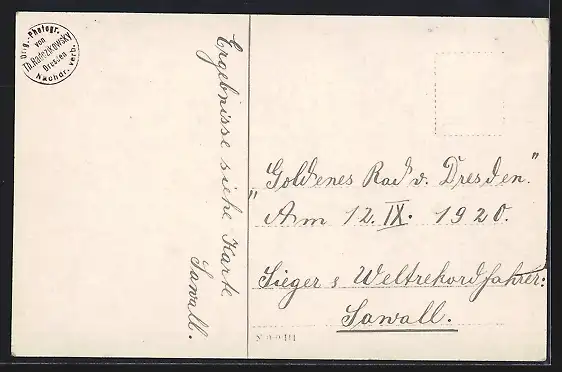 Orig.-Photogr.
von
Th. Radezikowsky
Dresden
Nachdr. verb.
Ergebnisse siehe Karte
Sawall.
"Goldenes Rad v. Dresden."
"Am 12. IX. 1920.
Sieger & Weltrekordfahrer:
Sawall.